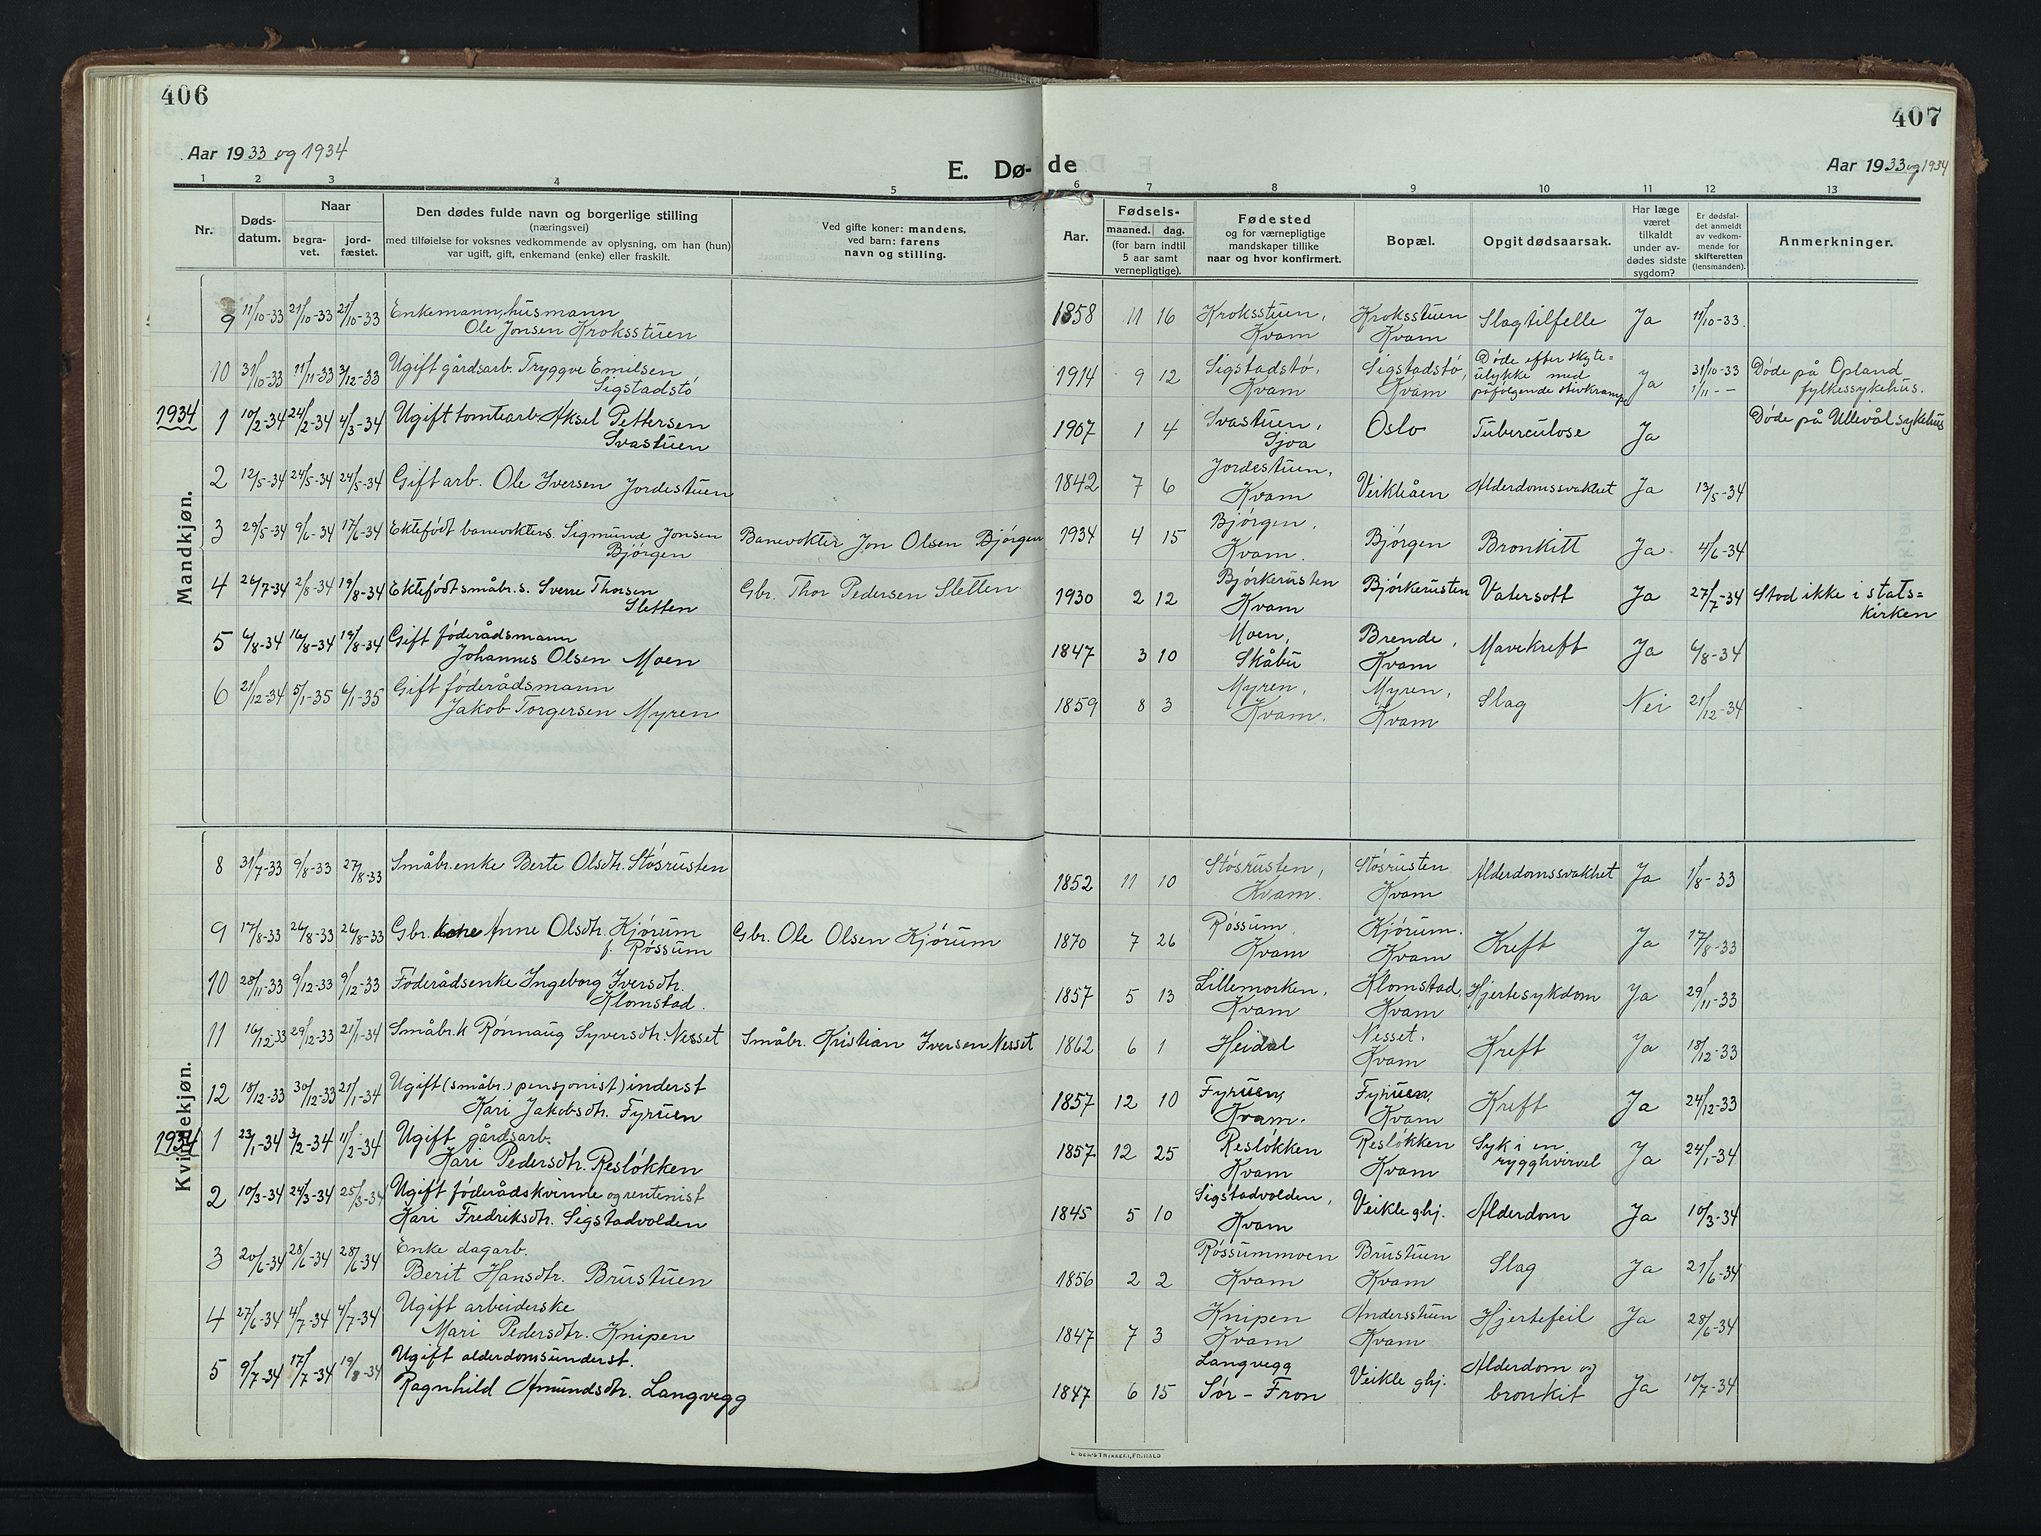 406
Aar 1933 og 1934
E. Dø-
1 2 3 4 5
Nr.
Døds-
datum.
Naar
begra-
vet.
jord-
fæstet.
Den dødes fulde navn og borgerlige stilling
(næringsvei)
med tilføielse for voksnes vedkommende av oplysning, om han (hun)
var ugift, gift, enkemand (enke) eller fraskilt.
Ved gifte koner: mandens,
ved barn: farens
navn og stilling.
Mandkjøn.
9 11/10-33 21/10-33 21/10-33 Enkemann, husmann
Ole Jonsen Kroksstuen
10 31/10-33 11/11-33 3/12-33 Ugift gårdsarb. Tryggve Emilsen
Sigstadstø
1934 1 10/2-34 24/2-34 4/3-34 Ugift tomtearb Aksel Pettersen
Svastuen
2 12/5-34 24/5-34 24/5-34 Gift arb. Ole Iversen Jordestuen
3 29/5-34 9/6-34 17/6-34 Ektefødt banevokters. Sigmund Jonsen
Bjørgen
Banevokter Jon Olsen Bjørgen
4 26/7-34 2/8-34 19/8-34 Ektefødt småbr. s. Sverre Thorsen
Sletten
Gbr. Thor Pedersen Sletten
5 6/8-34 16/8-34 19/8-34 Gift føderådsmann
Johannes Olsen Moen
6 21/12-34 5/1-35 6/1-35 Gift føderådsmann
Jakob Torgersen Myren
Kvindekjøn.
8 31/7-33 9/8-33 27/8-33 Småbr. enke Berte Olsdtr. Støsrusten
9 17/8-33 26/8-33 26/8-33 Gbr. kone Anne Olsdtr. Kjørum
f. Røssum
Gbr. Ole Olsen Kjørum
10 28/11-33 9/12-33 9/12-33 Føderådsenke Ingeborg Iversdtr.
Klomstad.
11 16/12-33 29/12-33 21/1-34 Småbr. k Rønnaug Syversdtr. Nesset
Småbr. Kristian Iversen Nesset
12 18/12-33 30/12-33 21/1-34 Ugift (småbr., pensjonist) inderst
Kari Jakobsdtr. Fyruen
1934 1 23/1-34 3/2-34 11/2-34 Ugift gårdsarb.
Kari Pedersdtr. Resløkken
2 10/3-34 24/3-34 25/3-34 Ugift føderådskvinne og rentenist
Kari Fredriksdtr. Sigstadvolden
3 20/6-34 28/6-34 28/6-34 Enke dagarb.
Berit Hansdtr. Brustuen
4 27/6-34 4/7-34 4/7-34 Ugift arbeiderske
Mari Pedersdtr. Knipen
5 9/7-34 17/7-34 19/8-34 Ugift alderdomsunderst.
Ragnhild Amundsdtr. Langvegg
407
de
Aar 1933 og 1934
6 7 8 9 10 11 12 13
Aar.
Fødsels-
maaned. dag.
(for barn indtil
5 aar samt
vernepligtige).
Fødested
og for værnepligtige
mandskaper tillike
naar og hvor konfirmert.
Bopæl.
Opgit dødsaarsak.
Har læge
været
tilkaldt
under av-
dødes sidste
sygdom?
Er dødsfal-
det anmeldt
av vedkom-
mende for
skifteretten
(lensmanden).
Anmerkninger.
1858 11 16 Kroksstuen, Kroksstuen Slagtilfelle Ja 11/10-33.
Kvam Kvam
1914 9 12 Sigstadstø, Sigstadstø, Døde efter skyte- Ja 31/10-33 Døde på Opland
Kvam Kvam ulykke med 1/11 -- fylkessykehus.
påfølgende stivkrampe
1907 1 4 Svastuen, Oslo Tuberculose Ja Døde på Ullevål sykehus
Sjoa
1842 7 6 Jordestuen, Veikleåen Alderdomssvakhet Ja 13/5-34
Kvam
1934 4 15 Bjørgen, Bjørgen Bronkitt Ja 4/6-34
Kvam.
1930 2 12 Bjørkerusten Bjørkerusten Vatersott Ja 27/7-34 Stod ikke i stats-
Kvam kirken
1847 3 10 Moen, Brende, Mavekreft Ja 6/8-34
Skåbu Kvam
1859 8 3 Myren, Myren, Slag Nei 21/12-34
Kvam. Kvam
1852 11 10 Støsrusten, Støsrusten Alderdomssvakhet Ja 1/8-33
Kvam. Kvam
1870 7 26 Røssum, Kjørum. Kreft Ja 17/8-33
Kvam Kvam
1857 5 13 Lillemorken, Klomstad, Hjertesykdom Ja 29/11-33
Kvam Kvam
1862 6 1 Heidal Nesset, Kreft Ja 18/12-33
Kvam
1857 12 10 Fyruen, Fyruen, Kreft Ja 24/12-33
Kvam. Kvam
1857 12 25 Resløkken Resløkken Syk i en Ja 24/1-34
Kvam Kvam rygghvirvel
1845 5 10 Sigstadvolden, Veikle ghj. Alderdom Ja 10/3-34
Kvam
1856 2 2 Røssummoen Brustuen Slag Ja 21/6-34
Kvam Kvam
1847 7 3 Knipen Andersstuen Hjertefeil Ja 28/6-34
Kvam Kvam
1847 6 15 Langvegg Veikle ghj. Alderdom og Ja 10/7-34
Sør-Fron bronkit